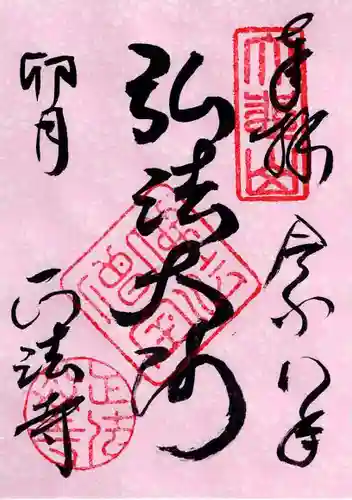 奉拝
令和八年
弘法大師
卯月
正法寺